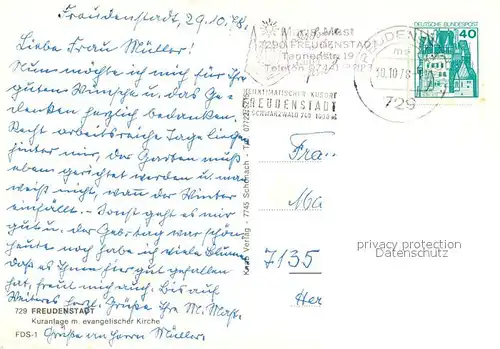 Freudenstadt, 29.10.78.
Liebe Frau Müller!
Nun möchte ich mich für Ihre
guten Wünsche u. das Ge-
denken herzlich bedanken.
Recht arbeitsreiche Tage liegen
hinter mir, der Garten muß
eben gerichtet werden u. man
weiß nicht, wan der Winter
einfällt. - Sonst geht es mir
gut u. der Geb.tag war schön
heute noch habe ich viele Blumen
daß es Ihnen hier gut gefallen
hat, freut mich auch. Bis auf
Weiteres herzl. Grüße Ihre M. Mast.
Grüße an Herrn Müller.
729 FREUDENSTADT
Kuranlage m. evangelischer Kirche
FDS-1
Knab Verlag - 7745 Schonach - Tel. 07722/5215
Mast
7290 FREUDENSTADT
19
Telefon
HEILKLIMATISCHER KURORT
FREUDENSTADT
SCHWARZWALD 740
30.10.78
729
DEUTSCHE BUNDESPOST
40
Frau
Ma
7135
Her
privacy protection
Datenschutz